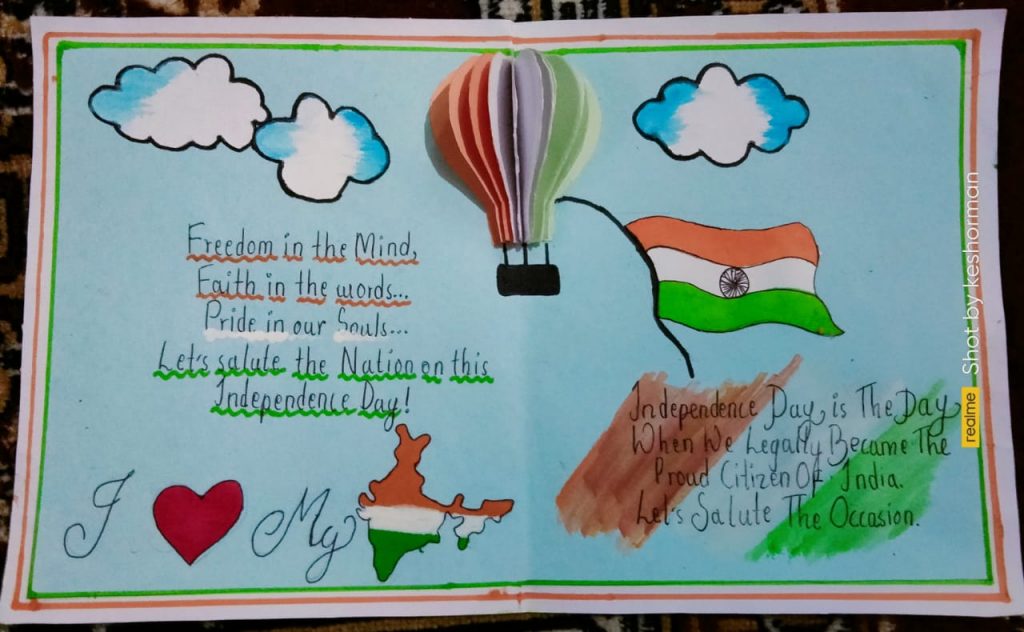 Freedom in the Mind,
Faith in the words...
Pride in our Souls...
Let's salute the Nation on this
Independence Day!
I My
Independence Day is The Day
When We Legally Became The
Proud Citizen Of India.
Let's Salute The Occasion.
realme Shot by keshorman